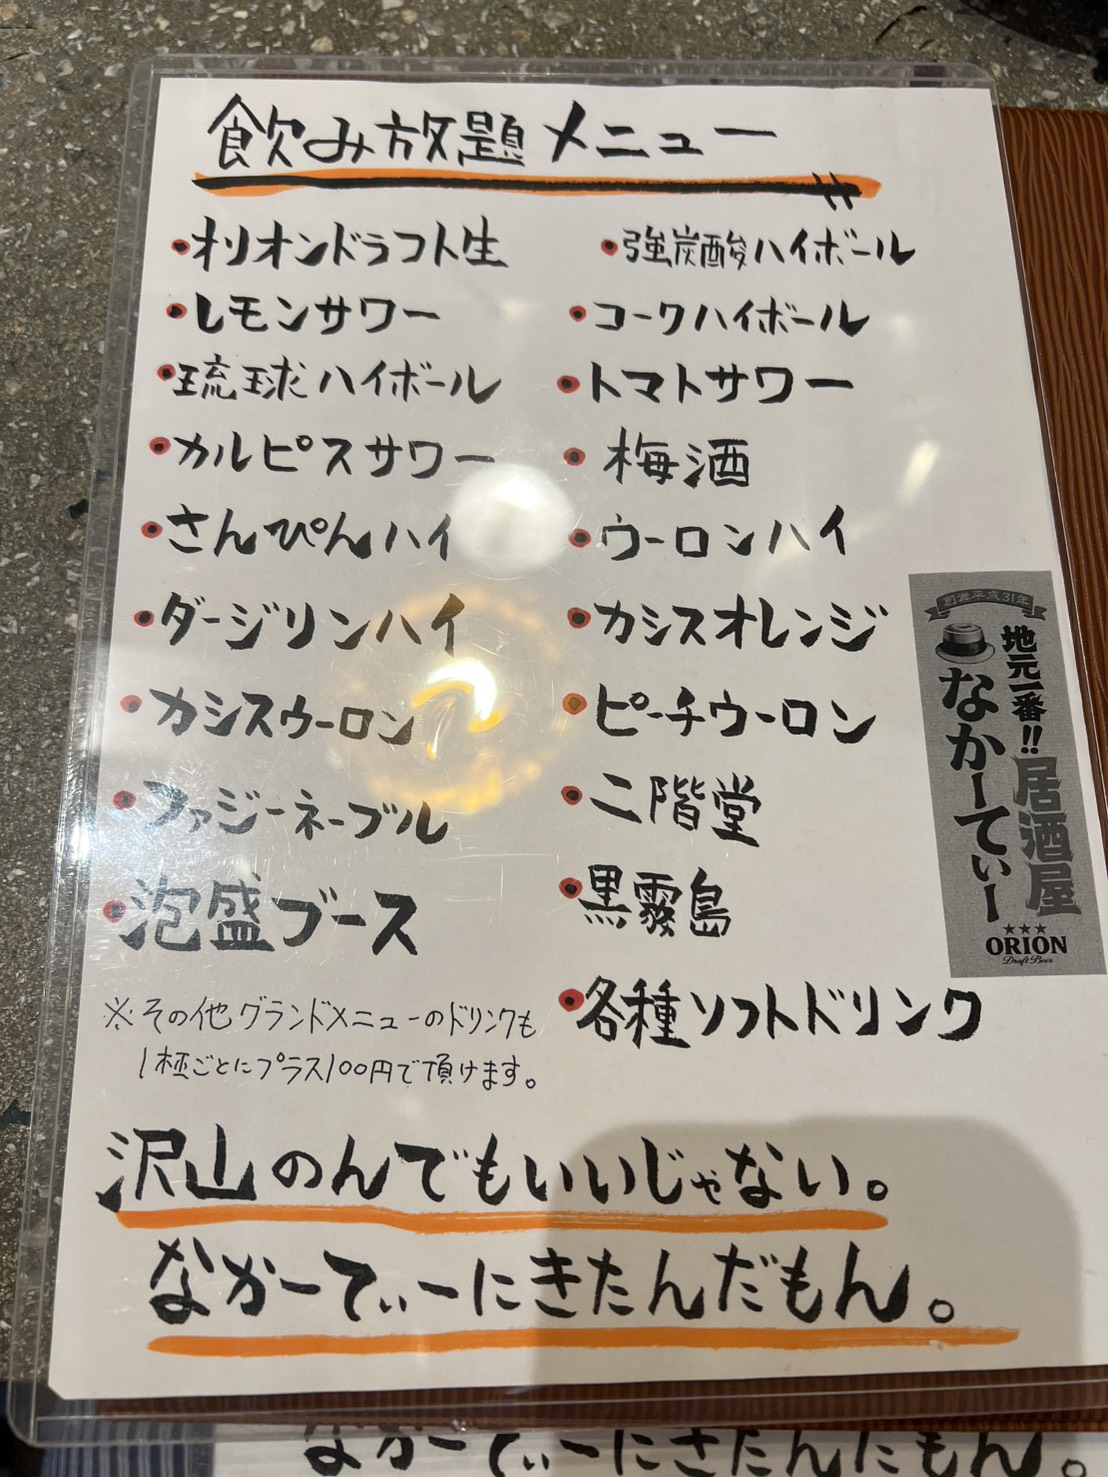 飲み放題メニュー
・オリオンドラフト生
・レモンサワー
・琉球ハイボール
・カルピスサワー
・さんぴんハイ
・ダージリンハイ
・カシスウーロン
・ファジーネーブル
・泡盛ブース
※その他グランドメニューのドリンクも
1杯ごとにプラス100円で頂けます。
・強炭酸ハイボール
・コークハイボール
・トマトサワー
・梅酒
・ウーロンハイ
・カシスオレンジ
・ピーチウーロン
・二階堂
・黒霧島
・各種ソフトドリンク
創業平成31年
地元一番!!居酒屋
なかーてぃー
ORION
Draft Beer
沢山のんでもいいじゃない。
なかーてぃーにきたんだもん。
なかーてぃーにきたんだもん。